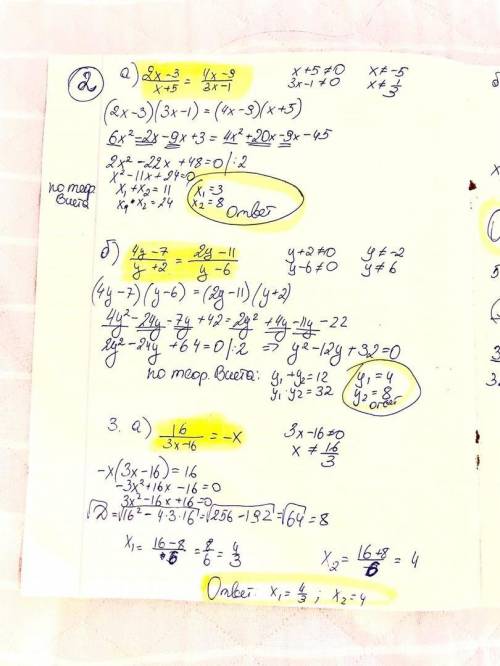 2
а) (2x-3)/(x+5) = (4x-9)/(3x-1)    x+5≠0    x≠-5
3x-1≠0    x≠1/3
(2x-3)(3x-1)=(4x-9)(x+5)
6x²-2x-9x+3=4x²+20x-9x-45
2x²-22x+48=0 /:2
x²-11x+24=0
по теор. Виета    x₁+x₂=11    x₁=3
x₁•x₂=24    x₂=8    Ответ
б) (4y-7)/(y+2) = (2y-11)/(y-6)    y+2≠0    y≠-2
y-6≠0    y≠6
(4y-7)(y-6)=(2y-11)(y+2)
4y²-24y-7y+42=2y²+4y-11y-22
2y²-24y+64=0 /:2 ⇒ y²-12y+32=0
по теор. Виета: y₁+y₂=12    y₁=4
y₁·y₂=32    y₂=8
ответ
3. а) 16/(3x-16) = -x    3x-16≠0
x≠16/3
-x(3x-16)=16
-3x²+16x-16=0
3x²-16x+16=0
√D=√(16²-4·3·16)=√(256-192)=√64=8
x₁=(16-8)/6=8/6=4/3    x₂=(16+8)/6=4
Ответ: x₁=4/3; x₂=4